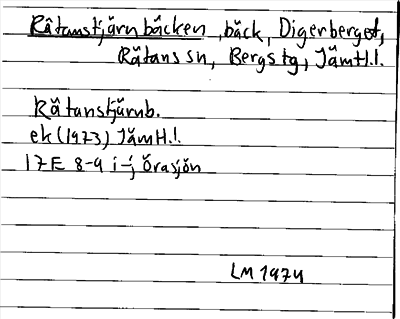 Råtanstjärnbäcken, bäck, Digerberget,
Råtans sn, Bergs tg, Jämtl.l.
Råtanstjärnb.
ek (1973) Jämtl.l.
17E 8-9 i-j Örasjön
LM 1974